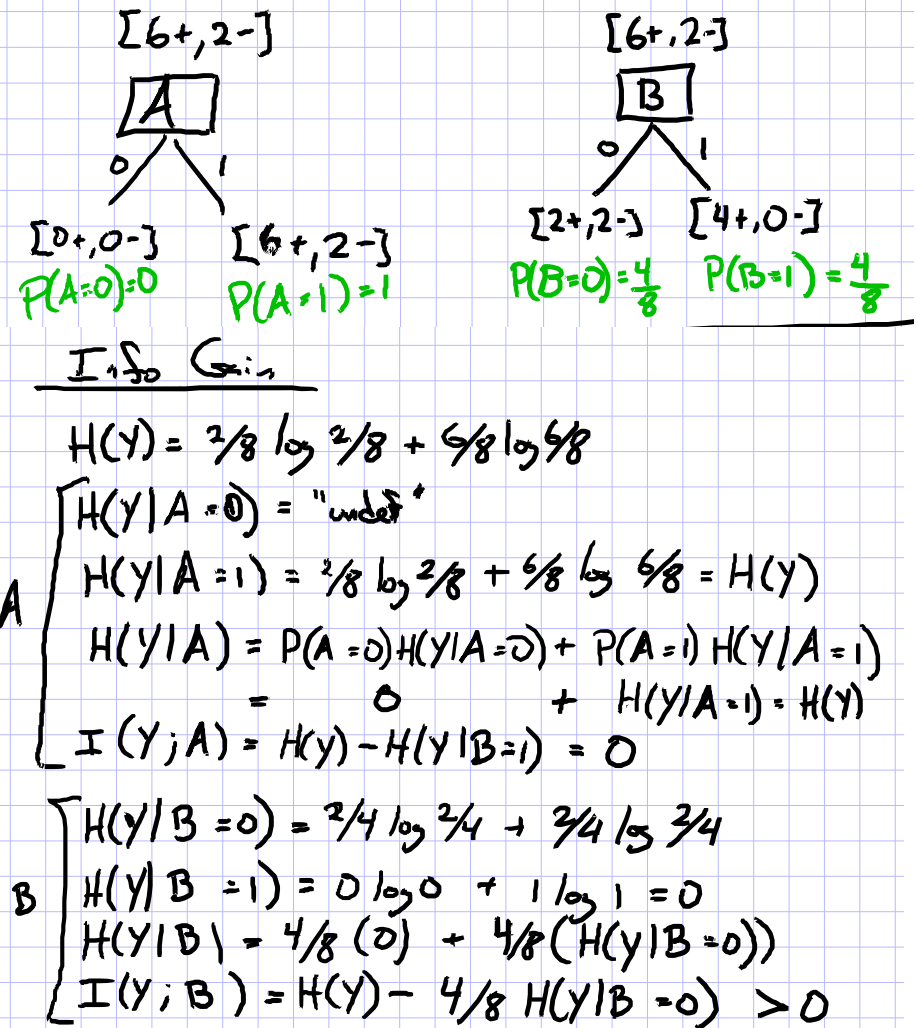 [6+, 2-]
A
0 1
[0+, 0-] [6+, 2-]
P(A=0)=0 P(A=1)=1
[6+, 2-]
B
0 1
[2+, 2-] [4+, 0-]
P(B=0)=4/8 P(B=1)=4/8
Info Gain
H(Y) = 2/8 log 2/8 + 6/8 log 6/8
A
H(Y|A=0) = "undef"
H(Y|A=1) = 2/8 log 2/8 + 6/8 log 6/8 = H(Y)
H(Y|A) = P(A=0)H(Y|A=0) + P(A=1) H(Y|A=1)
= 0 + H(Y|A=1) = H(Y)
I(Y;A) = H(Y) - H(Y|B=1) = 0
B
H(Y|B=0) = 2/4 log 2/4 + 2/4 log 2/4
H(Y|B=1) = 0 log 0 + 1 log 1 = 0
H(Y|B) = 4/8 (0) + 4/8 (H(Y|B=0))
I(Y;B) = H(Y) - 4/8 H(Y|B=0) > 0